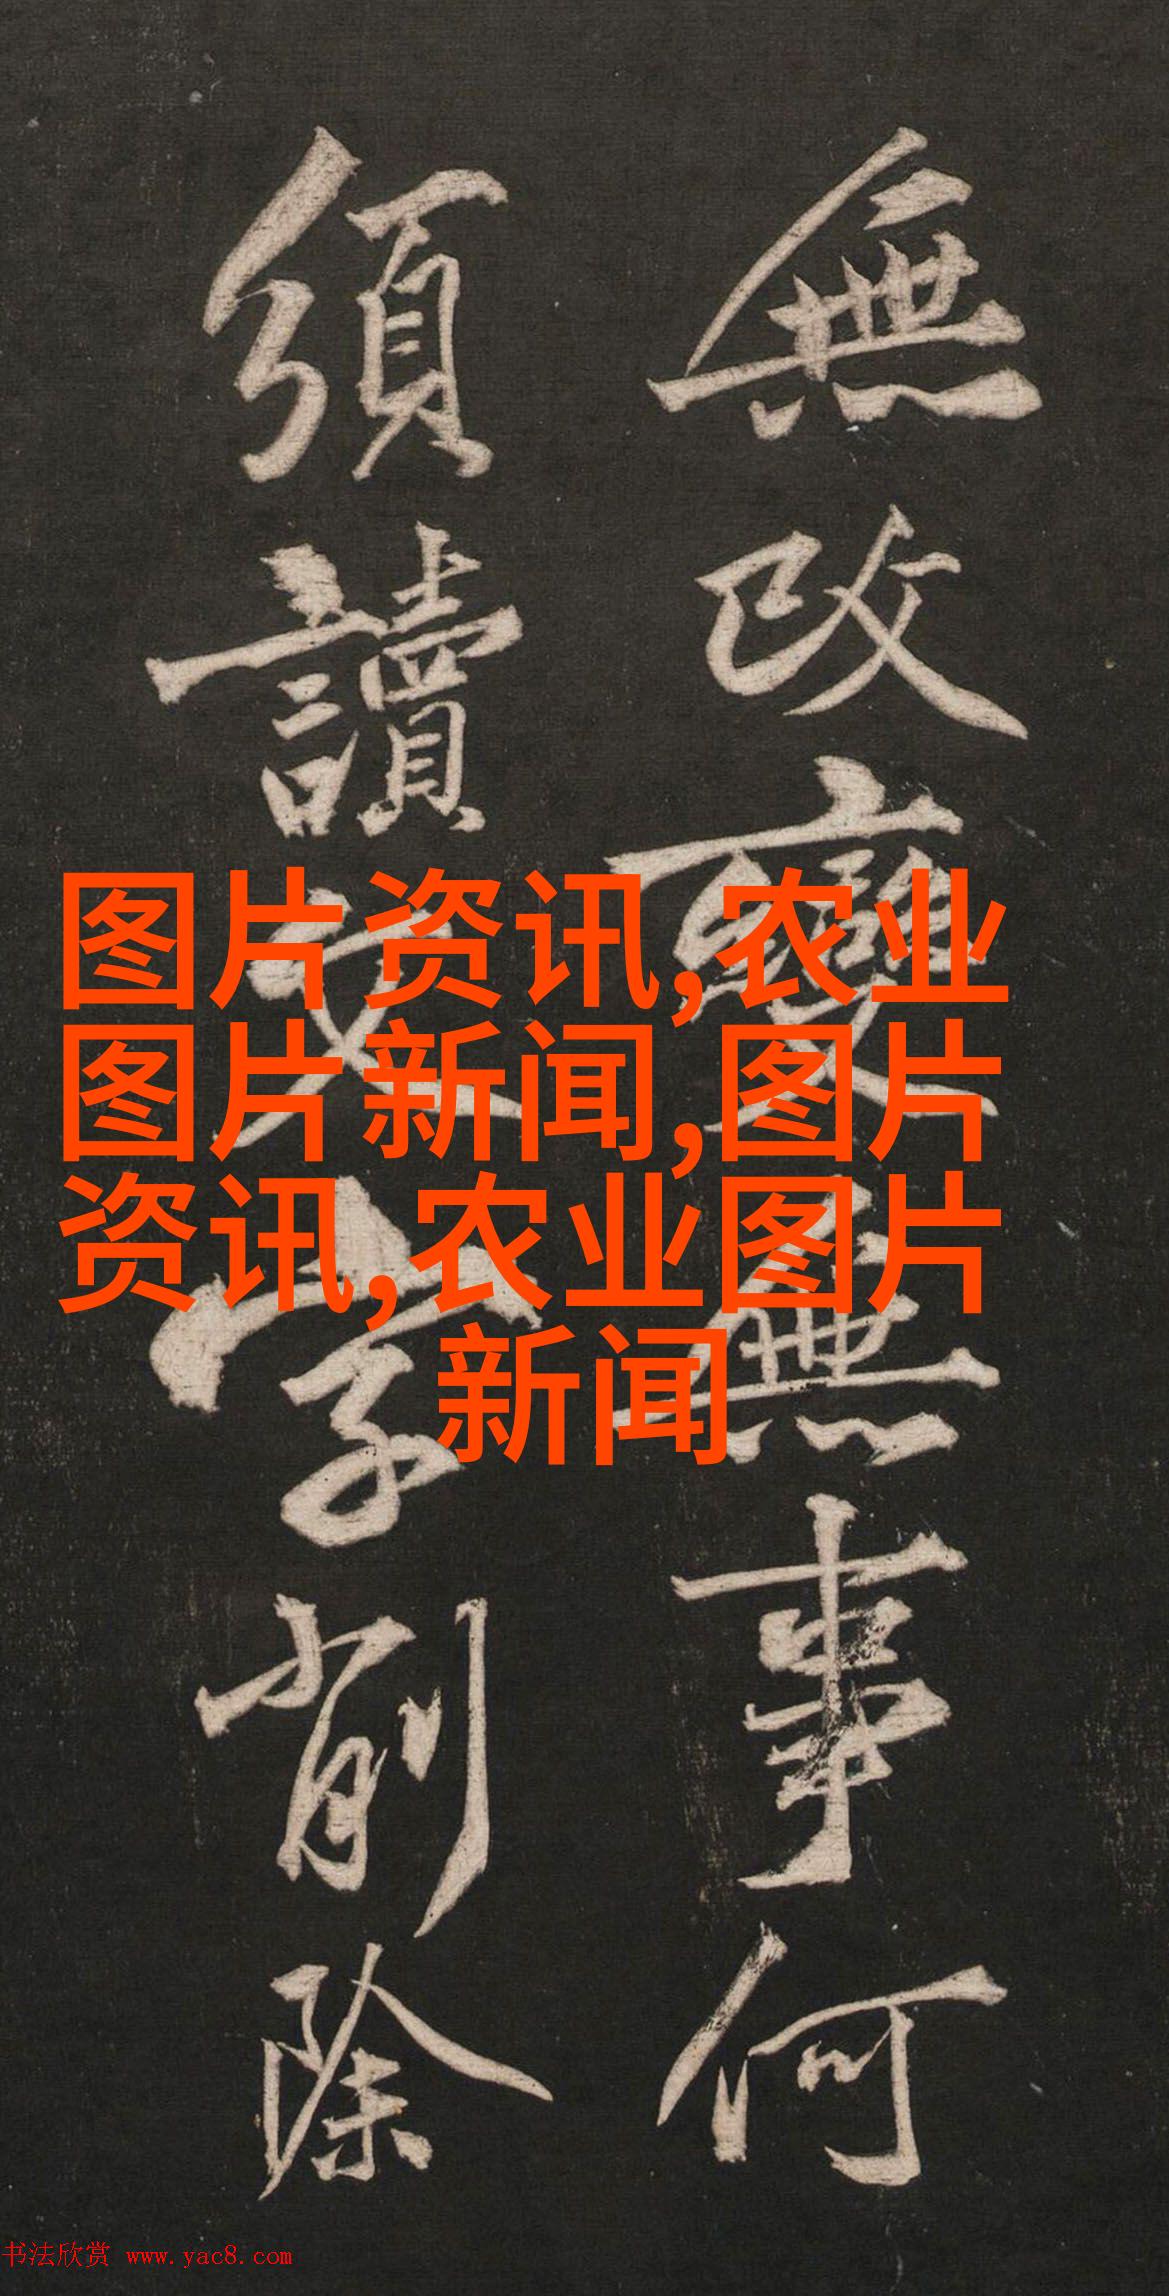 無改變無事何
須讀文字削除
图片资讯,农业
图片新闻,图片
资讯,农业图片
新闻
书法欣赏 www.yac8.com